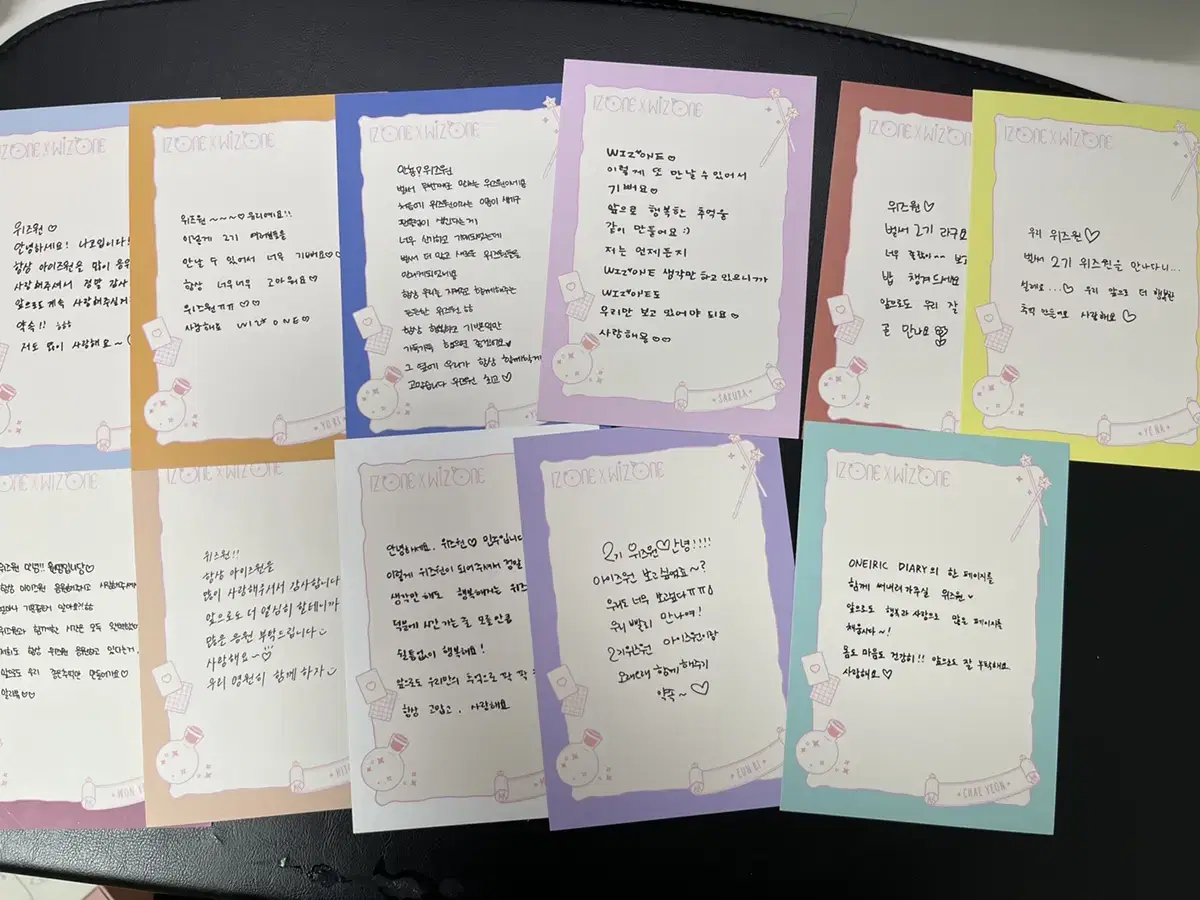 IZ*ONE X WIZ*ONE
위즈원 ♡
안녕하세요! 나코입니다!
항상 아이즈원을 많이 응원
사랑해주셔서 정말 감사
앞으로도 계속 사랑해주실거
약속!! ㅎㅎㅎ
저도 많이 사랑해요~♡
IZ*ONE X WIZ*ONE
위즈원~~~♡ 유리예요!!
이렇게 2기 여러분을
만날 수 있어서 너무 기뻐요♡
항상 너무너무 고마워요♡
위즈원ㄲㄲ ♡♡
사랑해요 WIZ*ONE♡
YU RI
IZ*ONE X WIZ*ONE
안뇽? 위즈원
벌써 두번째로 만나는 위즈원이네요
너무 신기하고 기대되었는데
벌써 더 많고 새로운 위즈원들을
만나게되었네요
항상 우리를 가까이서 함께해주는
든든한 위즈원 ㅎㅎ
항상 행복하고 기쁜일만
가득가득 했으면 좋겠어요♥
그 옆에 우리가 항상 함께할게
고맙습니다 위즈원 최고♡
IZ*ONE X WIZ*ONE
WIZ*ONE♡
이렇게 또 만날 수 있어서
기뻐요♡
앞으로 행복한 추억을
같이 만들어요 :)
저는 언제든지
WIZ*ONE 생각만 하고 있으니까
WIZ*ONE도
우리만 보고 있어야 되요♡
사랑해용♡♡
SAKURA
IZ*ONE X WIZ
위즈원♡
벌써 2기 라구요
너무
밥 챙겨드세요
앞으로도 우리 잘
곧 만나요
IZ*ONE X WIZ*ONE
우리 위즈원♡
벌써 2기 위즈원을 만나다니...
설레요...♡ 우리 앞으로 더 행복한
추억 만들어요 사랑해요♡
YE NA
IZ*ONE X WIZ*ONE
위즈원 안녕!! 원영입니당♡
항상 아이즈원 응원해주고 사랑해줘서
얼마나 기쁜줄은 알아요?! ㅎㅎ
위즈원과 함께한 시간은 모두 완벽했
저희도 항상 위즈원 응원하고 있다는거,
앞으로도 우리 좋은추억만 만들어가요♡
알러뷰♡♡
WON Y
IZ*ONE X WIZ*ONE
위즈원!!
항상 아이즈원을
많이 사랑해주셔서 감사합니다
앞으로도 더 열심히 할테니까
많은 응원 부탁드립니다
사랑해요~♡
우리 영원히 함께 하자
IZ*ONE X WIZ*ONE
안녕하세요. 위즈원♡ 민주입니다
이렇게 위즈원이 되어주셔서 정말
생각만 해도 행복해지는 위즈
덕분에 시간 가는 줄 모를만큼
쉴틈없이 행복해요!
앞으로도 우리만의 추억으로 꽉 꽉
항상 고맙고, 사랑해요
IZ*ONE X WIZ*ONE
2기 위즈원♡안녕!!!!
아이즈원 보고싶었죠~?
우리도 너무 보고싶었다ㅠㅠㅠ
우리 빨리 만나여!
2기위즈원 아이즈원이랑
오래오래 함께 해주기
약쏙~♡
EUN BI
IZ*ONE X WIZ*ONE
ONEIRIC DIARY의 한 페이지를
함께 써내려 가주실 위즈원♥
앞으로도 행복과 사랑으로 많은 페이지를
채웁시다~!
몸도 마음도 건강히!! 앞으로도 잘 부탁해요
사랑해요♡
CHAE YEON